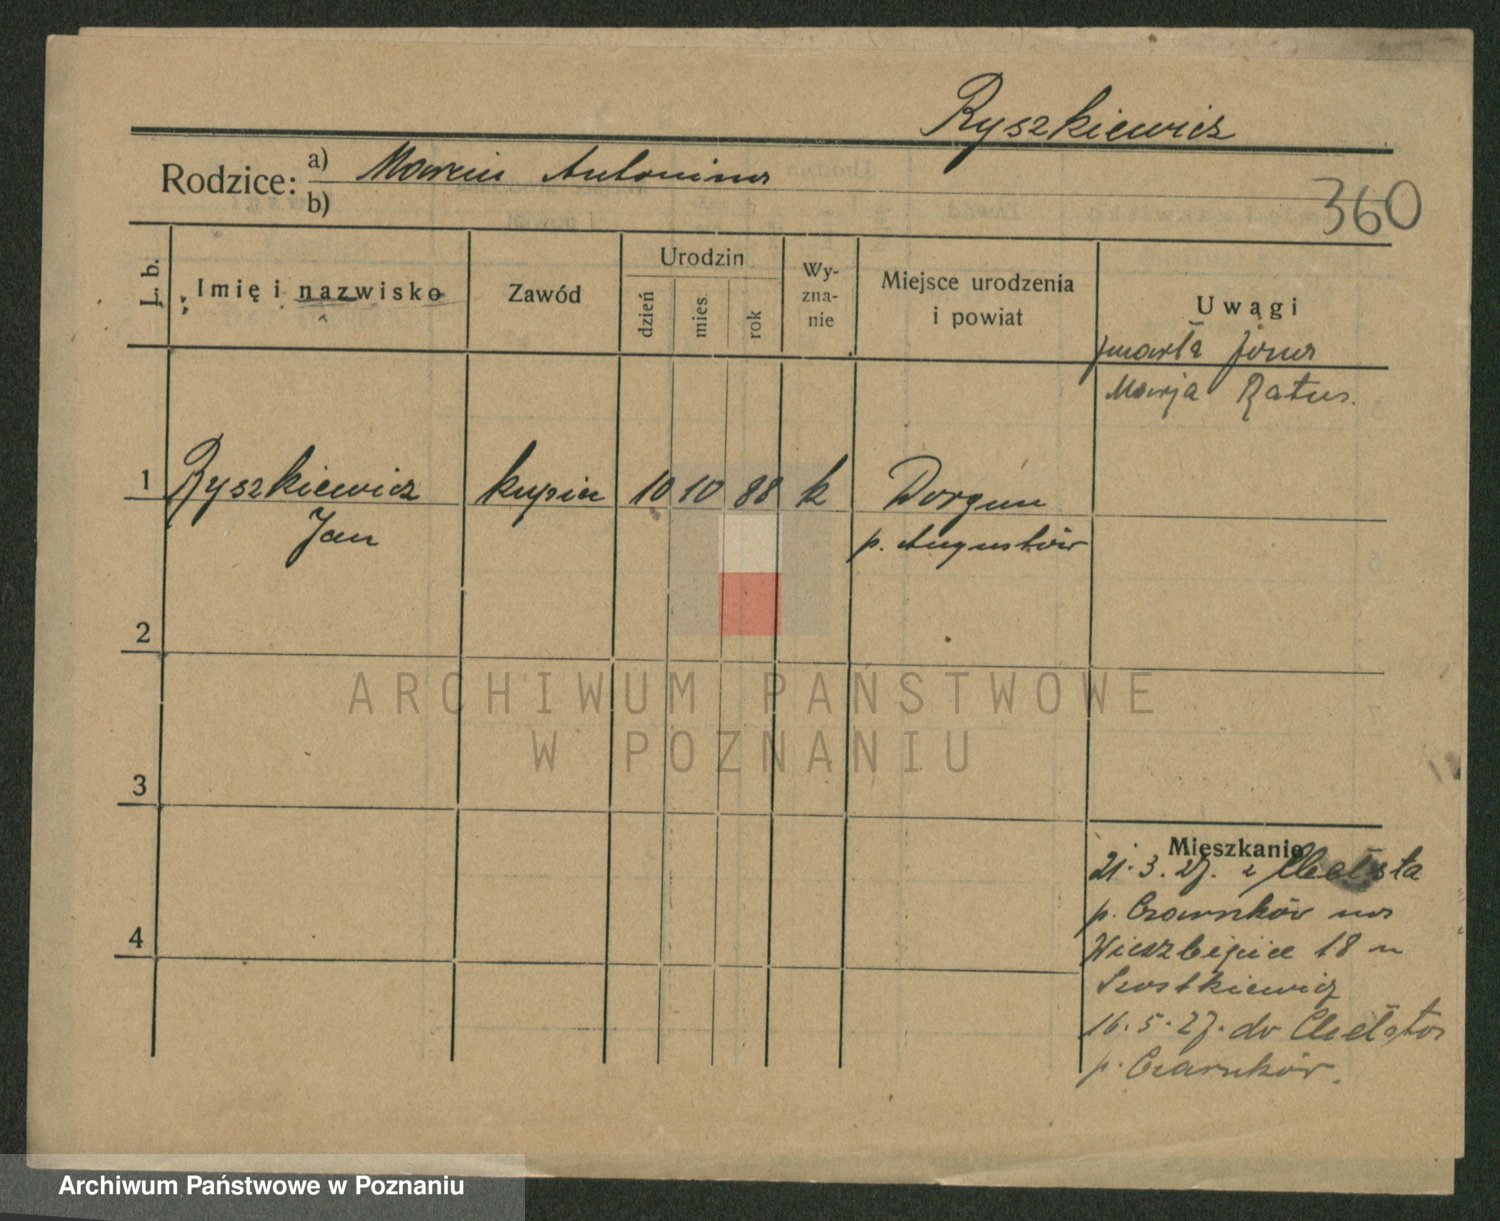 Ryszkiewicz
Rodzice: a) Marcin Antonina
b)
360
L. b.
Imię i nazwisko
Zawód
Urodzin
dzień
mies.
rok
Wy-
zna-
nie
Miejsce urodzenia
i powiat
Uwagi
zmarła żona
Marja Ratus.
1 Ryszkiewicz kupiec 10 10 88 k Dorgun
Jan p. Augustów
2
ARCHIWUM PAŃSTWOWE
W POZNANIU
3
Mieszkanie
21.3.27. z
p. Czarnków na
Wierzbięcice 18 u
16.5.27. do
p. Czarnków.
4
Archiwum Państwowe w Poznaniu